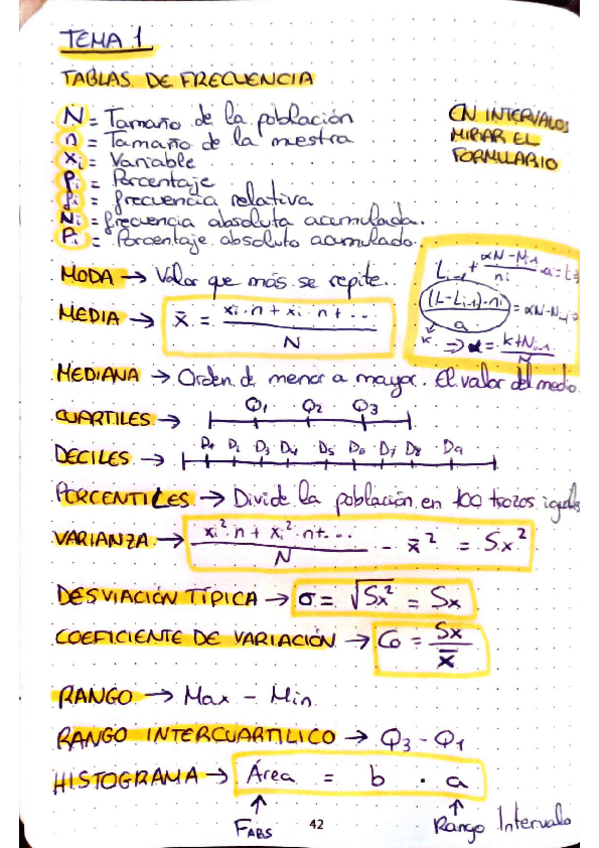 TEMA 1
TABLAS DE FRECUENCIA
N = Tamaño de la población
n = Tamaño de la muestra
xi = Variable
pi = Porcentaje
fi = frecuencia relativa
Ni = frecuencia absoluta acumulada.
Pi = Porcentaje absoluto acumulado.
EN INTERVALOS
MIRAR EL
FORMULARIO
MODA → Valor que más se repite.
Li-1 + αN - Ni-1 / ni · a = L
(L - Li-1) · ni / a = αN - Ni-1
K ⇒ α = K + Ni-1 / N
MEDIA → x̄ = xi · n + xi · n + ... / N
MEDIANA → Orden de menor a mayor. El valor del medio.
CUARTILES → Q1 Q2 Q3
DECILES → D1 D2 D3 D4 D5 D6 D7 D8 D9
PERCENTILES → Divide la población en 100 trozos iguales
VARIANZA → xi² · n + xi² · n + ... / N - x̄² = Sx²
DESVIACIÓN TÍPICA → σ = √Sx² = Sx
COEFICIENTE DE VARIACIÓN → Co = Sx / x̄
RANGO → Max - Min.
RANGO INTERCUARTILICO → Q3 - Q1
HISTOGRAMA → Área = b · a
↑ FABS
↑ Rango Intervalo
42